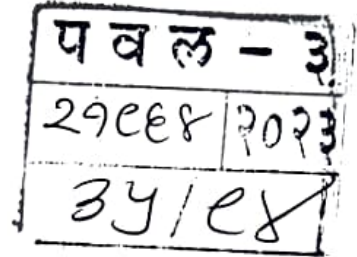 प व ल - ३
२१९६४ २०२३
३५/९४